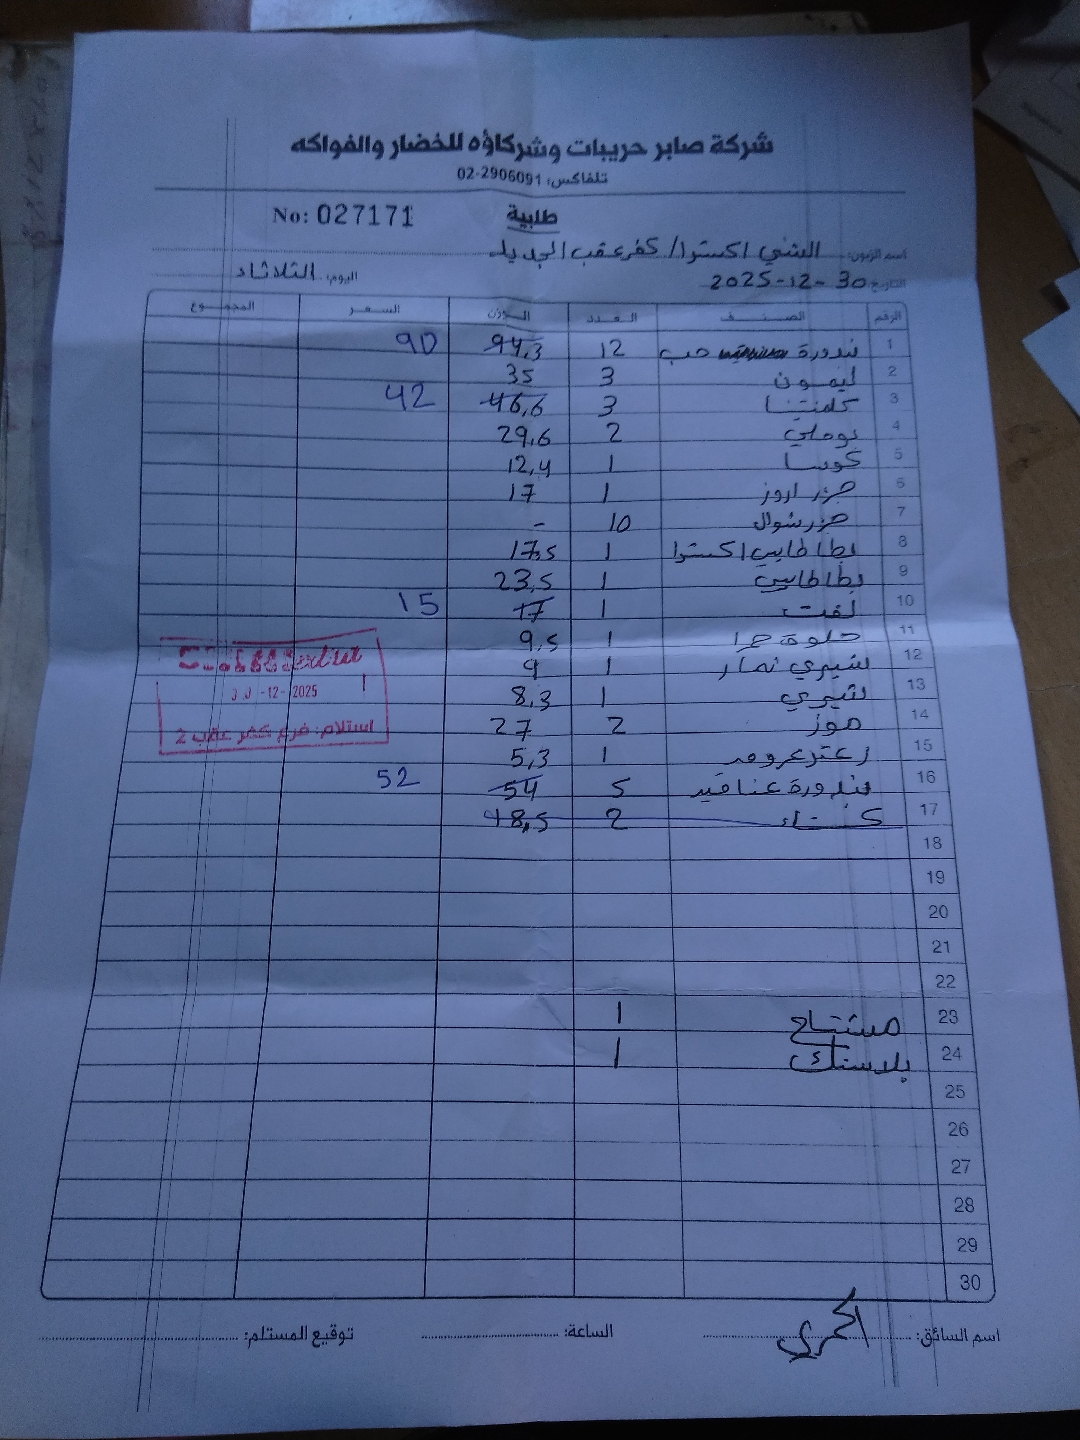 شركة صابر حريبات وشركاؤه للخضار والفواكه
تلفاكس: 02-2906091
No: 027171
طلبية
اسم الزبون: الشني اكسترا / كفر عقب الجديد
التاريخ: 30-12-2025 اليوم: الثلاثاء
الرقم الصنف العدد الوزن السعر المجموع
1 بندورة حب 12 94,3 90
2 ليمون 3 35
3 كلمنتينا 3 46,6 42
4 بوملي 2 29,6
5 كوسا 1 12,4
6 جزر 1 17
7 جزر شوال 10 -
8 بطاطا بيبي اكسترا 1 17,5
9 بطاطا بيبي 1 23,5
10 لفت 1 17 15
11 حلوة حمرا 1 9,5
12 شيري تمار 1 9
13 شيري 1 8,3
14 موز 2 27
15 زعتر 1 5,3
16 بندورة عناقيد 5 54 52
17 2 48,5
18
19
20
21
22
23 مشتاح 1
24 بلاستك 1
25
26
27
28
29
30
30-12-2025
استلام: فرع كفر عقب 2
اسم السائق: الساعة: توقيع المستلم: